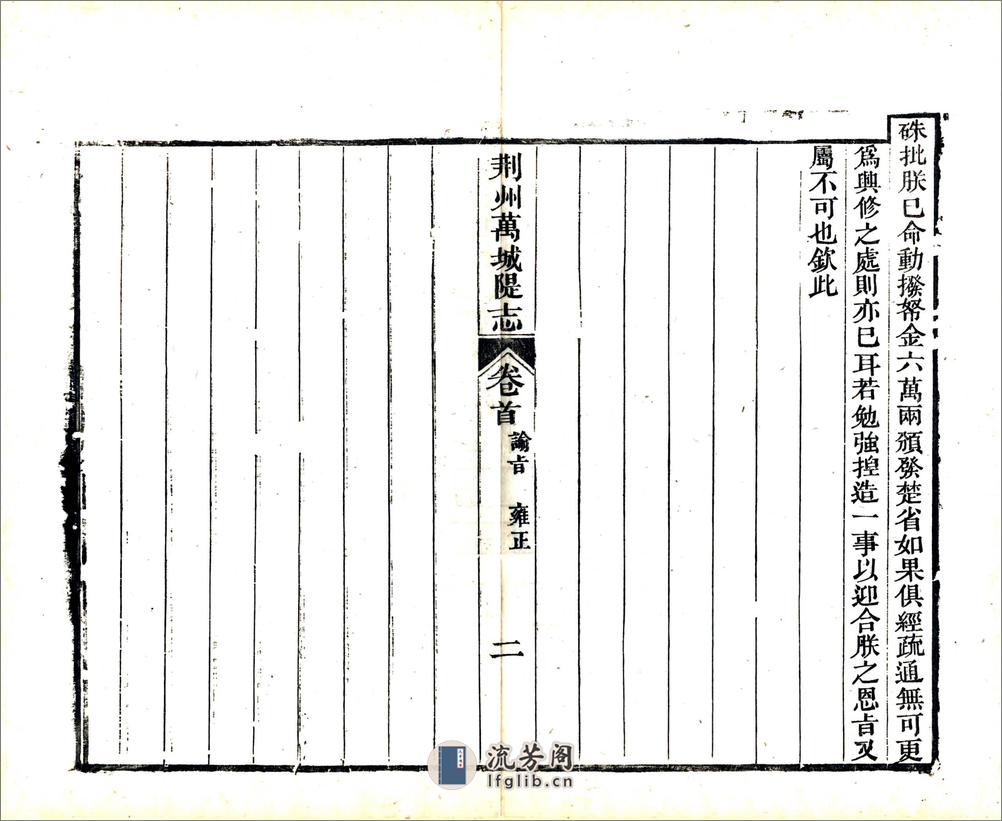 硃批朕已命動撥帑金六萬兩頒發楚省如果俱經疏通無可更
爲興修之處則亦已耳若勉強揑造一事以迎合朕之恩旨又
屬不可也欽此
荆州萬城隄志
卷首
諭旨 雍正
二
流芳阁
lfglib.cn